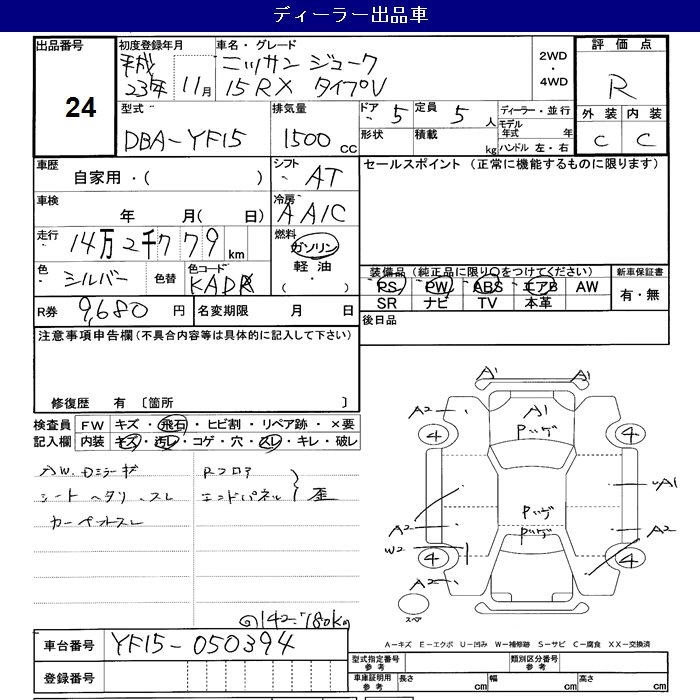 ディーラー出品車
出品番号 初度登録年月 車名・グレード 2WD・4WD 評価点
24 平成23年 11月 ニッサン ジューク 15RX タイプV R
外装 内装
C C
型式 排気量 ドア 5 定員 5人 ディーラー・並行
DBA-YF15 1500cc 形状 積載 kg モデル年式 年
ハンドル 左・右
車歴 シフト セールスポイント (正常に機能するものに限ります)
自家用・( ) AT
車検 冷房
年 月( 日) AAIC
走行 燃料
14万2千779km ガソリン
軽油・( )
色 シルバー 色替 色コード KADR
装備品 (純正品に限り○をつけてください) 新車保証書
PS PW ABS エアB AW 有・無
SR ナビ TV 本革
R券 9,680円 名変期限 月 日
後日品
注意事項申告欄(不具合内容等は具体的に記入して下さい)
修復歴 有 〔箇所 〕
検査員 FW キズ・飛石・ヒビ割・リペア跡・×要
記入欄 内装 キズ・汚レ・コゲ・穴・スレ・キレ・破レ
AW. Dミラーキズ
シートヘタリ、スレ
カーペットスレ
Rフロア
エンドパネル 歪
142-780km
A1 A1
A2 A1 Pツゲ
4 4
A1
Pツゲ
A2 Pツゲ A2
W2
4 4
A2
スペア
車台番号 YF15-050394
登録番号
A-キズ E-エクボ U-凹み W-補修跡 S-サビ C-腐食 XX-交換済
型式指定番号 参考 類別区分番号 参考
車庫証明用 参考 長さ cm 幅 cm 高さ cm